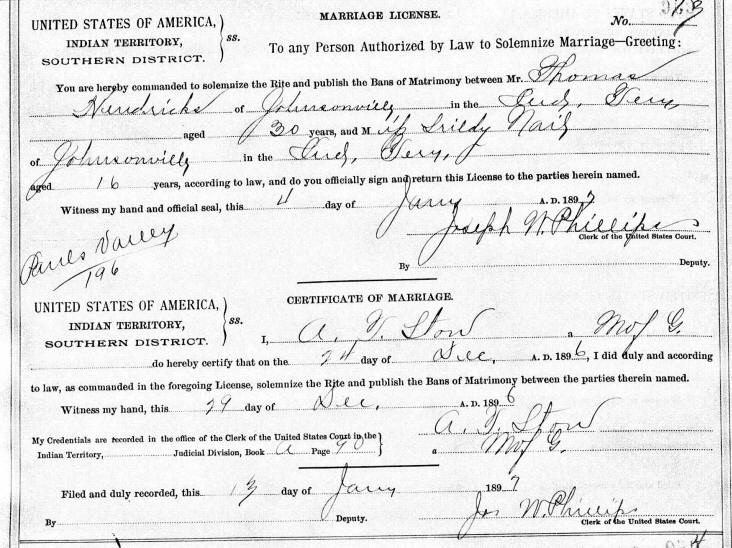 MARRIAGE LICENSE.
No. 923
UNITED STATES OF AMERICA,
INDIAN TERRITORY,
SOUTHERN DISTRICT.
ss.
To any Person Authorized by Law to Solemnize Marriage—Greeting:
You are hereby commanded to solemnize the Rite and publish the Bans of Matrimony between Mr. Thomas
Hendricks of Johnsonville in the Ind, Tery,
aged 30 years, and Miss Nail
of Johnsonville in the Ind, Tery,
aged 16 years, according to law, and do you officially sign and return this License to the parties herein named.
Witness my hand and official seal, this 4 day of Jany A. D. 1897
Joseph W. Phillips
Clerk of the United States Court.
By Deputy.
Pauls Valley
196
CERTIFICATE OF MARRIAGE.
UNITED STATES OF AMERICA,
INDIAN TERRITORY,
SOUTHERN DISTRICT.
ss.
I, A. T. Stow a M of G.
do hereby certify that on the 24 day of Dec, A. D. 1896, I did duly and according
to law, as commanded in the foregoing License, solemnize the Rite and publish the Bans of Matrimony between the parties therein named.
Witness my hand, this 29 day of Dec. A. D. 1896
A. T. Stow
a M of G.
My Credentials are recorded in the office of the Clerk of the United States Court in the
Indian Territory, Judicial Division, Book A Page 90
Filed and duly recorded, this 13 day of Jany 1897
Jos W. Phillips
By Deputy. Clerk of the United States Court.